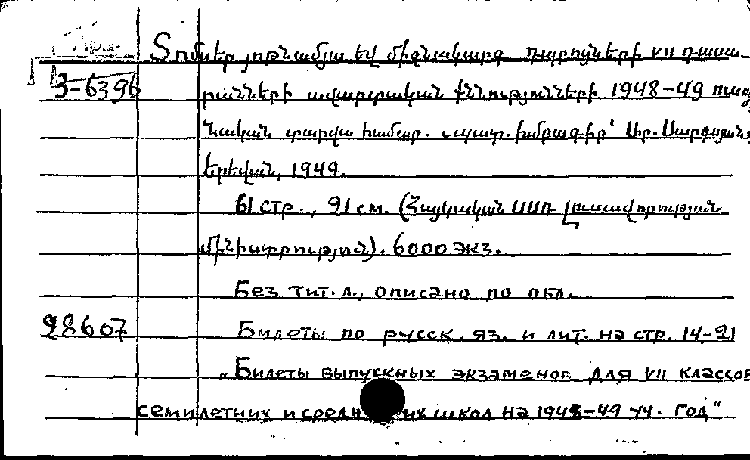 Տոմսեր յոթնամյա եվ միջնակարգ դպրոցների VII դասա
3-6396
րանների ավարտական քննությունների 1948-49 ուսում
նական տարվա համար. պատ. խմբագիր՝ Ար. Սարգսյան
Երեվան, 1949.
61 стр., 21 см. (Հայկական ՍՍՌ Լուսավորության
մինիստրություն). 6000 экз.
Без тит. л., описано по обл.
28607 Билеты по русск. яз. и лит. на стр. 14-21
„Билеты выпускных экзаменов для VII классов
семилетних и средних школ на 1948-49 уч. год"